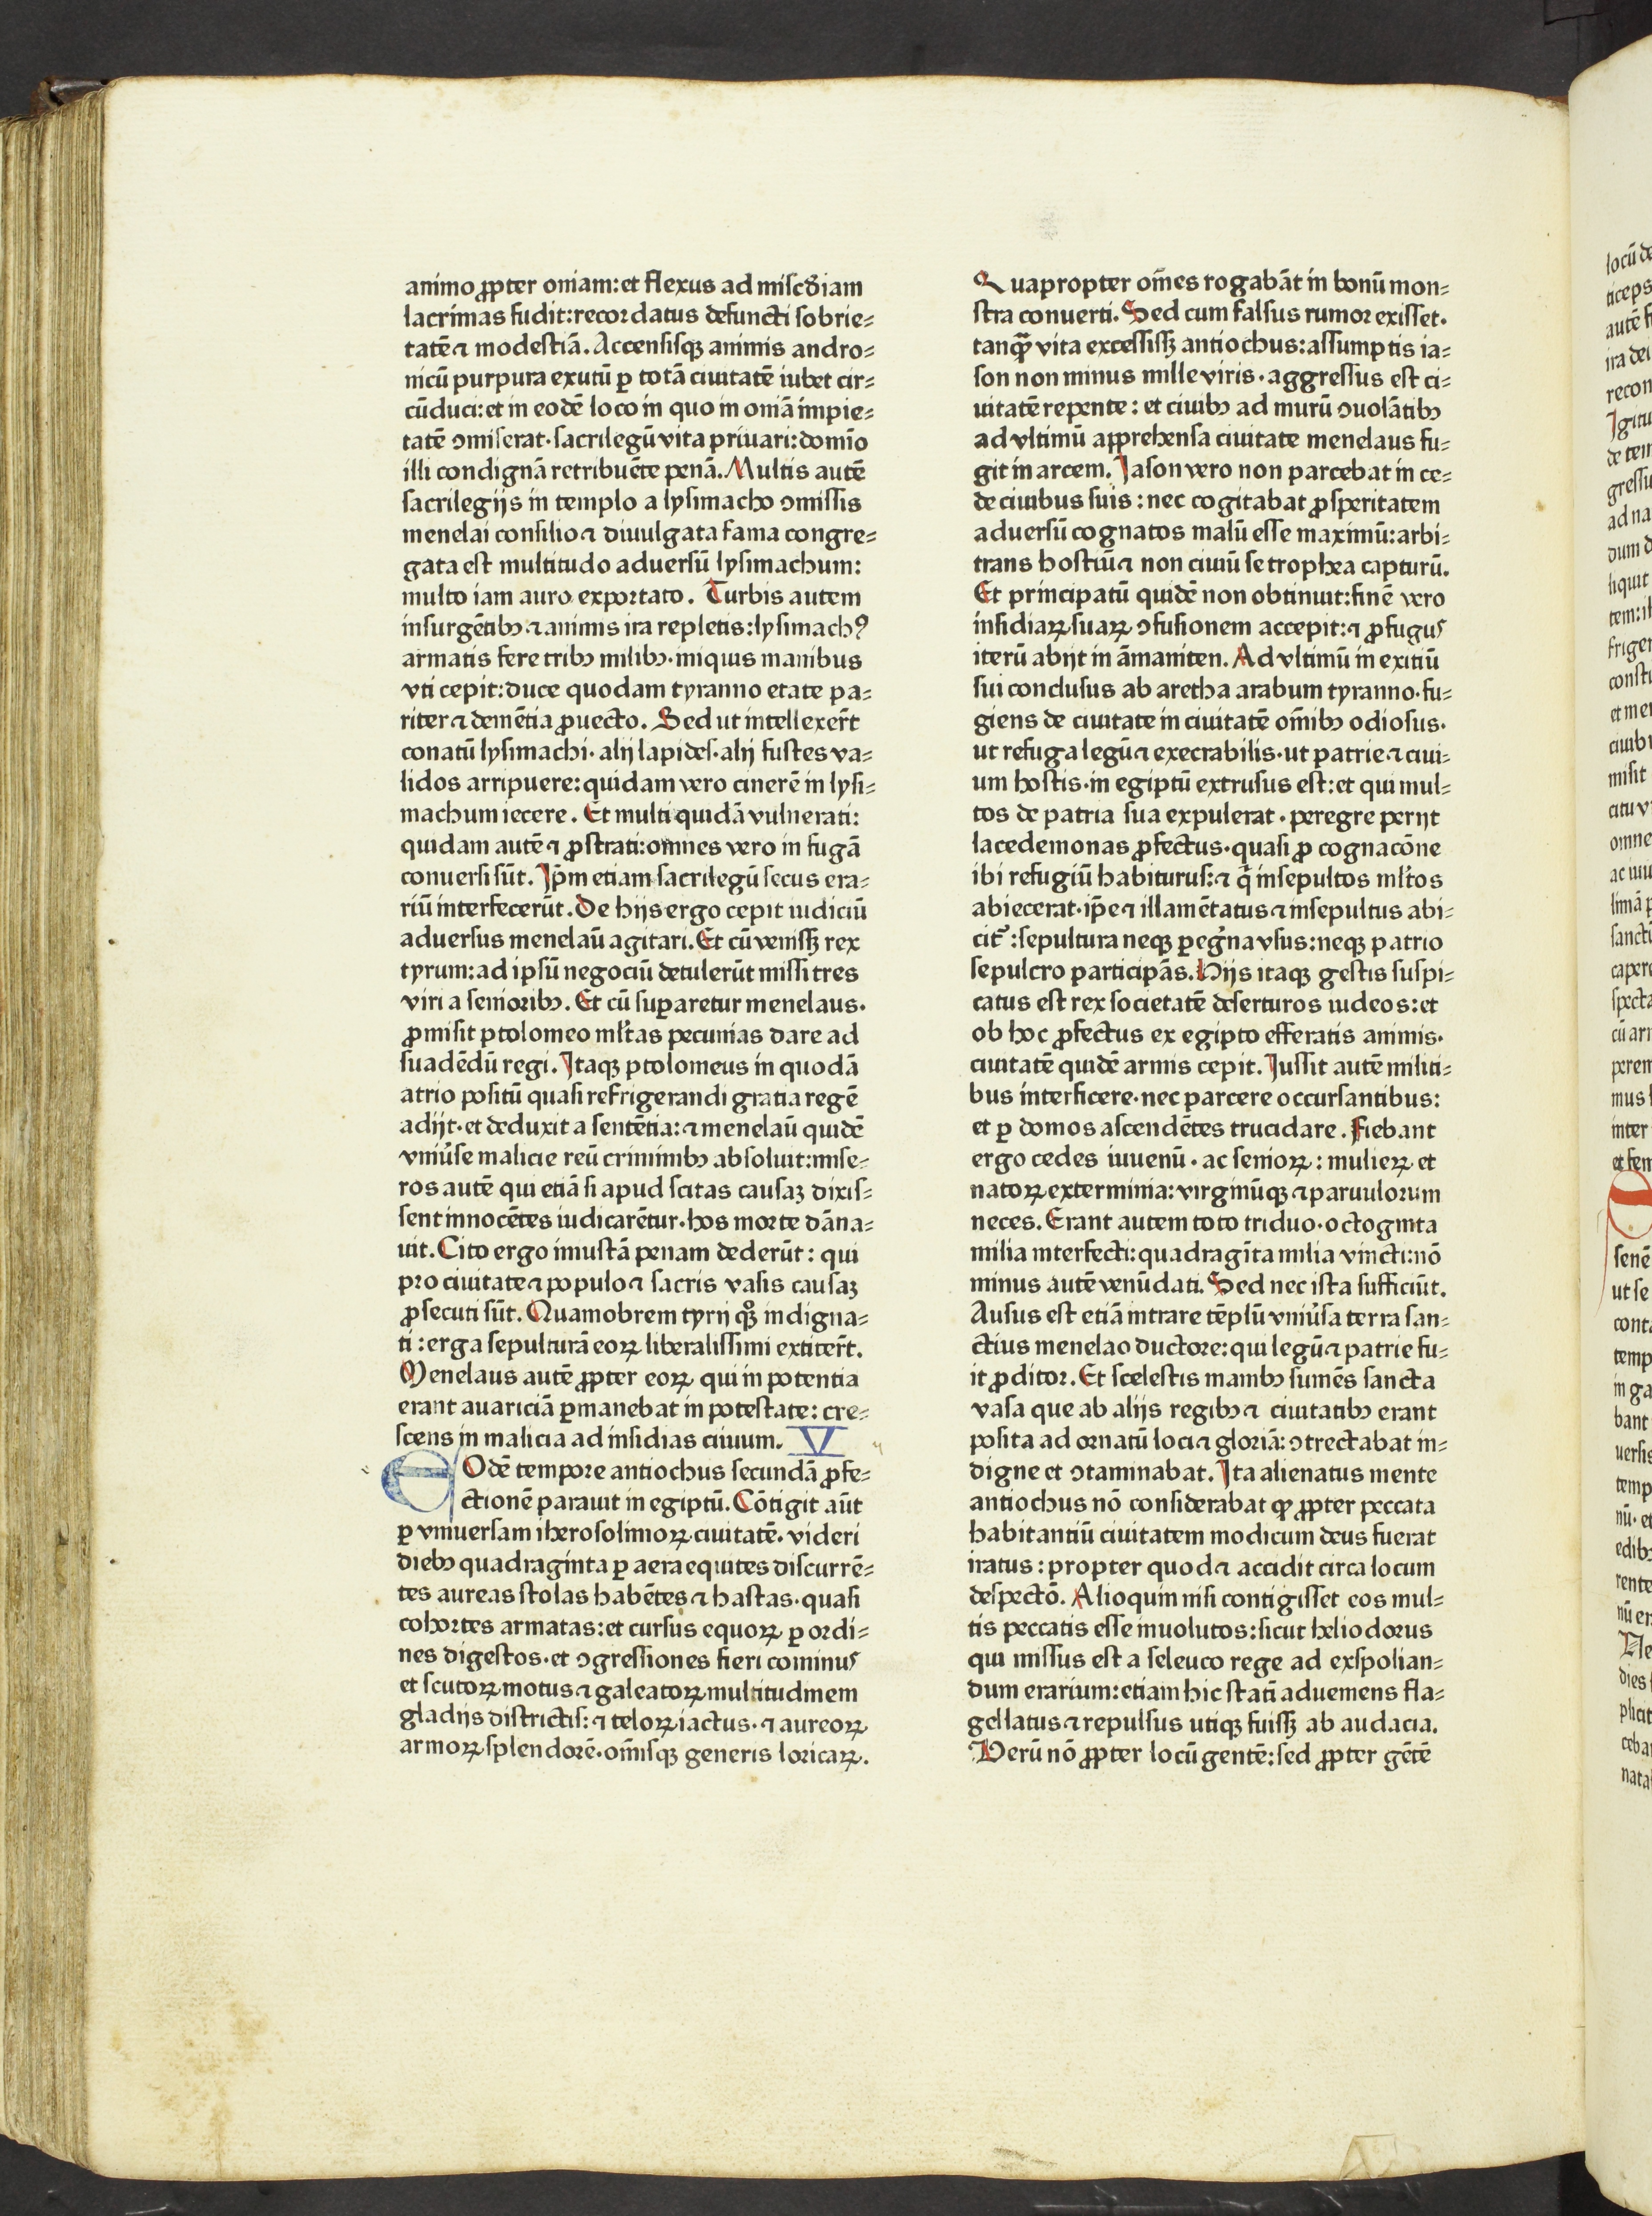 animo ꝓpter oniam: et flexus ad miſcďiam
lacrimas fudit: recordatus defuncti ſobrie⸗
tatē ⁊ modeſtiā. Accenſiſqꝫ animis andro⸗
nicū purpura exutū ꝑ totā ciuitatē iubet cir⸗
cūduci: et in eodē loco in quo in oniā impie⸗
tatē ↄmiſerat· ſacrilegū vita priuari: domīo
illi condignā retribuēte penā. Multis autē
ſacrilegijs in templo a lyſimacho ↄmiſſis
menelai conſilio ⁊ diuulgata fama congre⸗
gata eſt multitudo aduerſū lyſimachum:
multo iam auro exportato. Turbis autem
inſurgētibꝫ ⁊ animis ira repletis: lyſimachꝰ
armatis fere tribꝫ milibꝫ· iniquis manibus
vti cepit: duce quodam tyranno etate pa⸗
riter ⁊ demētia ꝓuecto. Sed ut intellexer̄t
conatū lyſimachi· alij lapideſ· alij fuſtes va⸗
lidos arripuere: quidam vero cinerē in lyſi⸗
machum iecere. Et multi quidā vulnerati:
quidam autē ⁊ ꝓſtrati: omnes vero in fugā
conuerſi ſūt. Ip̄m etiam ſacrilegū ſecus era⸗
riū interfecerūt. De hijs ergo cepit iudiciū
aduerſus menelaū agitari. Et cū veniſſꝫ rex
tyrum: ad ipſū negociū detulerūt miſſi tres
viri a ſenioribꝫ. Et cū ſuꝑaretur menelaus·
ꝓmiſit ptolomeo ml̄tas pecunias dare ad
ſuadēdū regi. Itaqꝫ ptolomeus in quodā
atrio poſitū quaſi refrigerandi gratia regē
adijt· et deduxit a ſentētia: ⁊ menelaū quidē
vniu̓ſe malicie reū criminibꝫ abſoluit: miſe⸗
ros autē qui etiā ſi apud ſcitas cauſaꝫ dixiſ⸗
ſent innocētes iudicarētur· hos morte dāna⸗
uit. Cito ergo iniuſtā penam dederūt: qui
pro ciuitate ⁊ populo ⁊ ſacris vaſis cauſaꝫ
ꝓſecuti ſūt. Quamobrem tyrij qͦꝫ indigna⸗
ti: erga ſepulturā eoꝝ liberaliſſimi extiter̄t.
Menelaus autē ꝓpter eoꝝ qui in potentia
erant auariciā ꝑmanebat in poteſtate: cre⸗
ſcens in malicia ad inſidias ciuium. V
EOdē tempore antiochus ſecundā ꝓfe⸗
ctionē parauit in egiptū. Cōtigit aūt
ꝑ vniuerſam iheroſolimoꝝ ciuitatē· videri
diebꝫ quadraginta ꝑ aera equites diſcurrē⸗
tes aureas ſtolas habētes ⁊ haſtas· quaſi
cohortes armatas: et curſus equoꝝ ꝑ ordi⸗
nes digeſtos· et ↄgreſſiones fieri cominuſ
et ſcutoꝝ motus ⁊ galeatoꝝ multitudinem
gladijs diſtrictiſ: ⁊ teloꝝ iactus· ⁊ aureoꝝ
armoꝝ ſplendorē· om̄iſqꝫ generis loricaꝝ.
Quapropter om̄es rogabāt in bonū mon⸗
ſtra conuerti. Sed cum falſus rumor exiſſet·
tanꝙ̄ vita exceſſiſſꝫ antiochus: aſſumptis ia⸗
ſon non minus mille viris· aggreſſus eſt ci⸗
uitatē repente: et ciuibꝫ ad murū ↄuolātibꝫ
ad vltimū apprehenſa ciuitate menelaus fu⸗
git in arcem. Iaſon vero non parcebat in ce⸗
de ciuibus ſuis: nec cogitabat ꝓſperitatem
aduerſū cognatos malū eſſe maximū: arbi⸗
trans hoſtiū ⁊ non ciuiū ſe trophea capturū.
Et principatū quidē non obtinuit: finē vero
inſidiaꝝ ſuaꝝ ↄfuſionem accepit: ⁊ ꝓfuguſ
iterū abijt in āmaniten. Ad vltimū in exitiū
ſui concluſus ab aretha arabum tyranno· fu⸗
giens de ciuitate in ciuitatē om̄ibꝫ odioſus·
ut refuga legū ⁊ execrabilis· ut patrie ⁊ ciui⸗
um hoſtis· in egiptū extruſus eſt: et qui mul⸗
tos de patria ſua expulerat· peregre perijt
lacedemonas ꝓfectus· quaſi ꝓ cognacōne
ibi refugiū habituruſ: ⁊ qͥ inſepultos ml̄tos
abiecerat· ip̄e ⁊ illamētatus ⁊ inſepultus abi⸗
citᷣ: ſepultura neqꝫ ꝑegͥna vſus: neqꝫ patrio
ſepulcro participās. Hijs itaqꝫ geſtis ſuſpi⸗
catus eſt rex ſocietatē deſerturos iudeos: et
ob hoc ꝓfectus ex egipto efferatis animis·
ciuitatē quidē armis cepit. Iuſſit autē militi⸗
bus interficere· nec parcere occurſantibus:
et ꝑ domos aſcendētes trucidare. Fiebant
ergo cedes iuuenū· ac ſenioꝝ: mulieꝝ et
natoꝝ exterminia: virginūqꝫ ⁊ paruulorum
neces. Erant autem toto triduo· octoginta
milia interfecti: quadragīta milia vincti: nō
minus autē venūdati. Sed nec iſta ſufficiūt.
Auſus eſt etiā intrare tēplū vniu̓ſa terra ſan⸗
ctius menelao ductore: qui legū ⁊ patrie fu⸗
it ꝓditor. Et ſceleſtis manibꝫ ſumēs ſancta
vaſa que ab alijs regibꝫ ⁊ ciuitatibꝫ erant
poſita ad ornatū loci ⁊ gloriā: ↄtrectabat in⸗
digne et ↄtaminabat. Ita alienatus mente
antiochus nō conſiderabat ꝙ ꝓpter peccata
habitantiū ciuitatem modicum deus fuerat
iratus: propter quod ⁊ accidit circa locum
deſpectō. Alioquin niſi contigiſſet eos mul⸗
tis peccatis eſſe inuolutos: ſicut heliodorus
qui miſſus eſt a ſeleuco rege ad exſpolian⸗
dum erarium: etiam hic ſtatī aduemens fla⸗
gellatus ⁊ repulſus utiqꝫ fuiſſꝫ ab audacia.
Verū nō ꝓpter locū gentē: ſed ꝓpter gētē